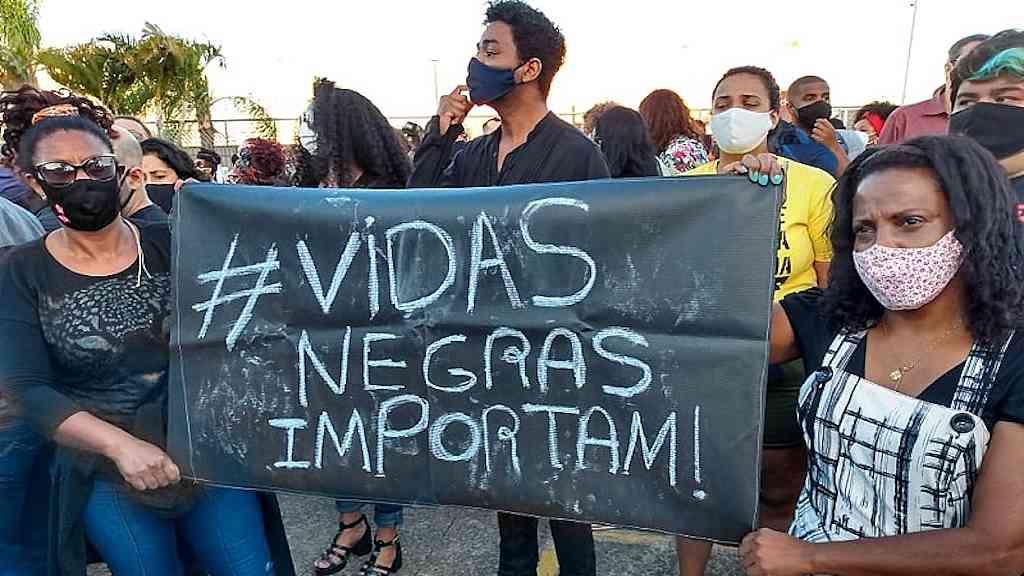 #ViDAS
NEGRAS
IMPORTAM!